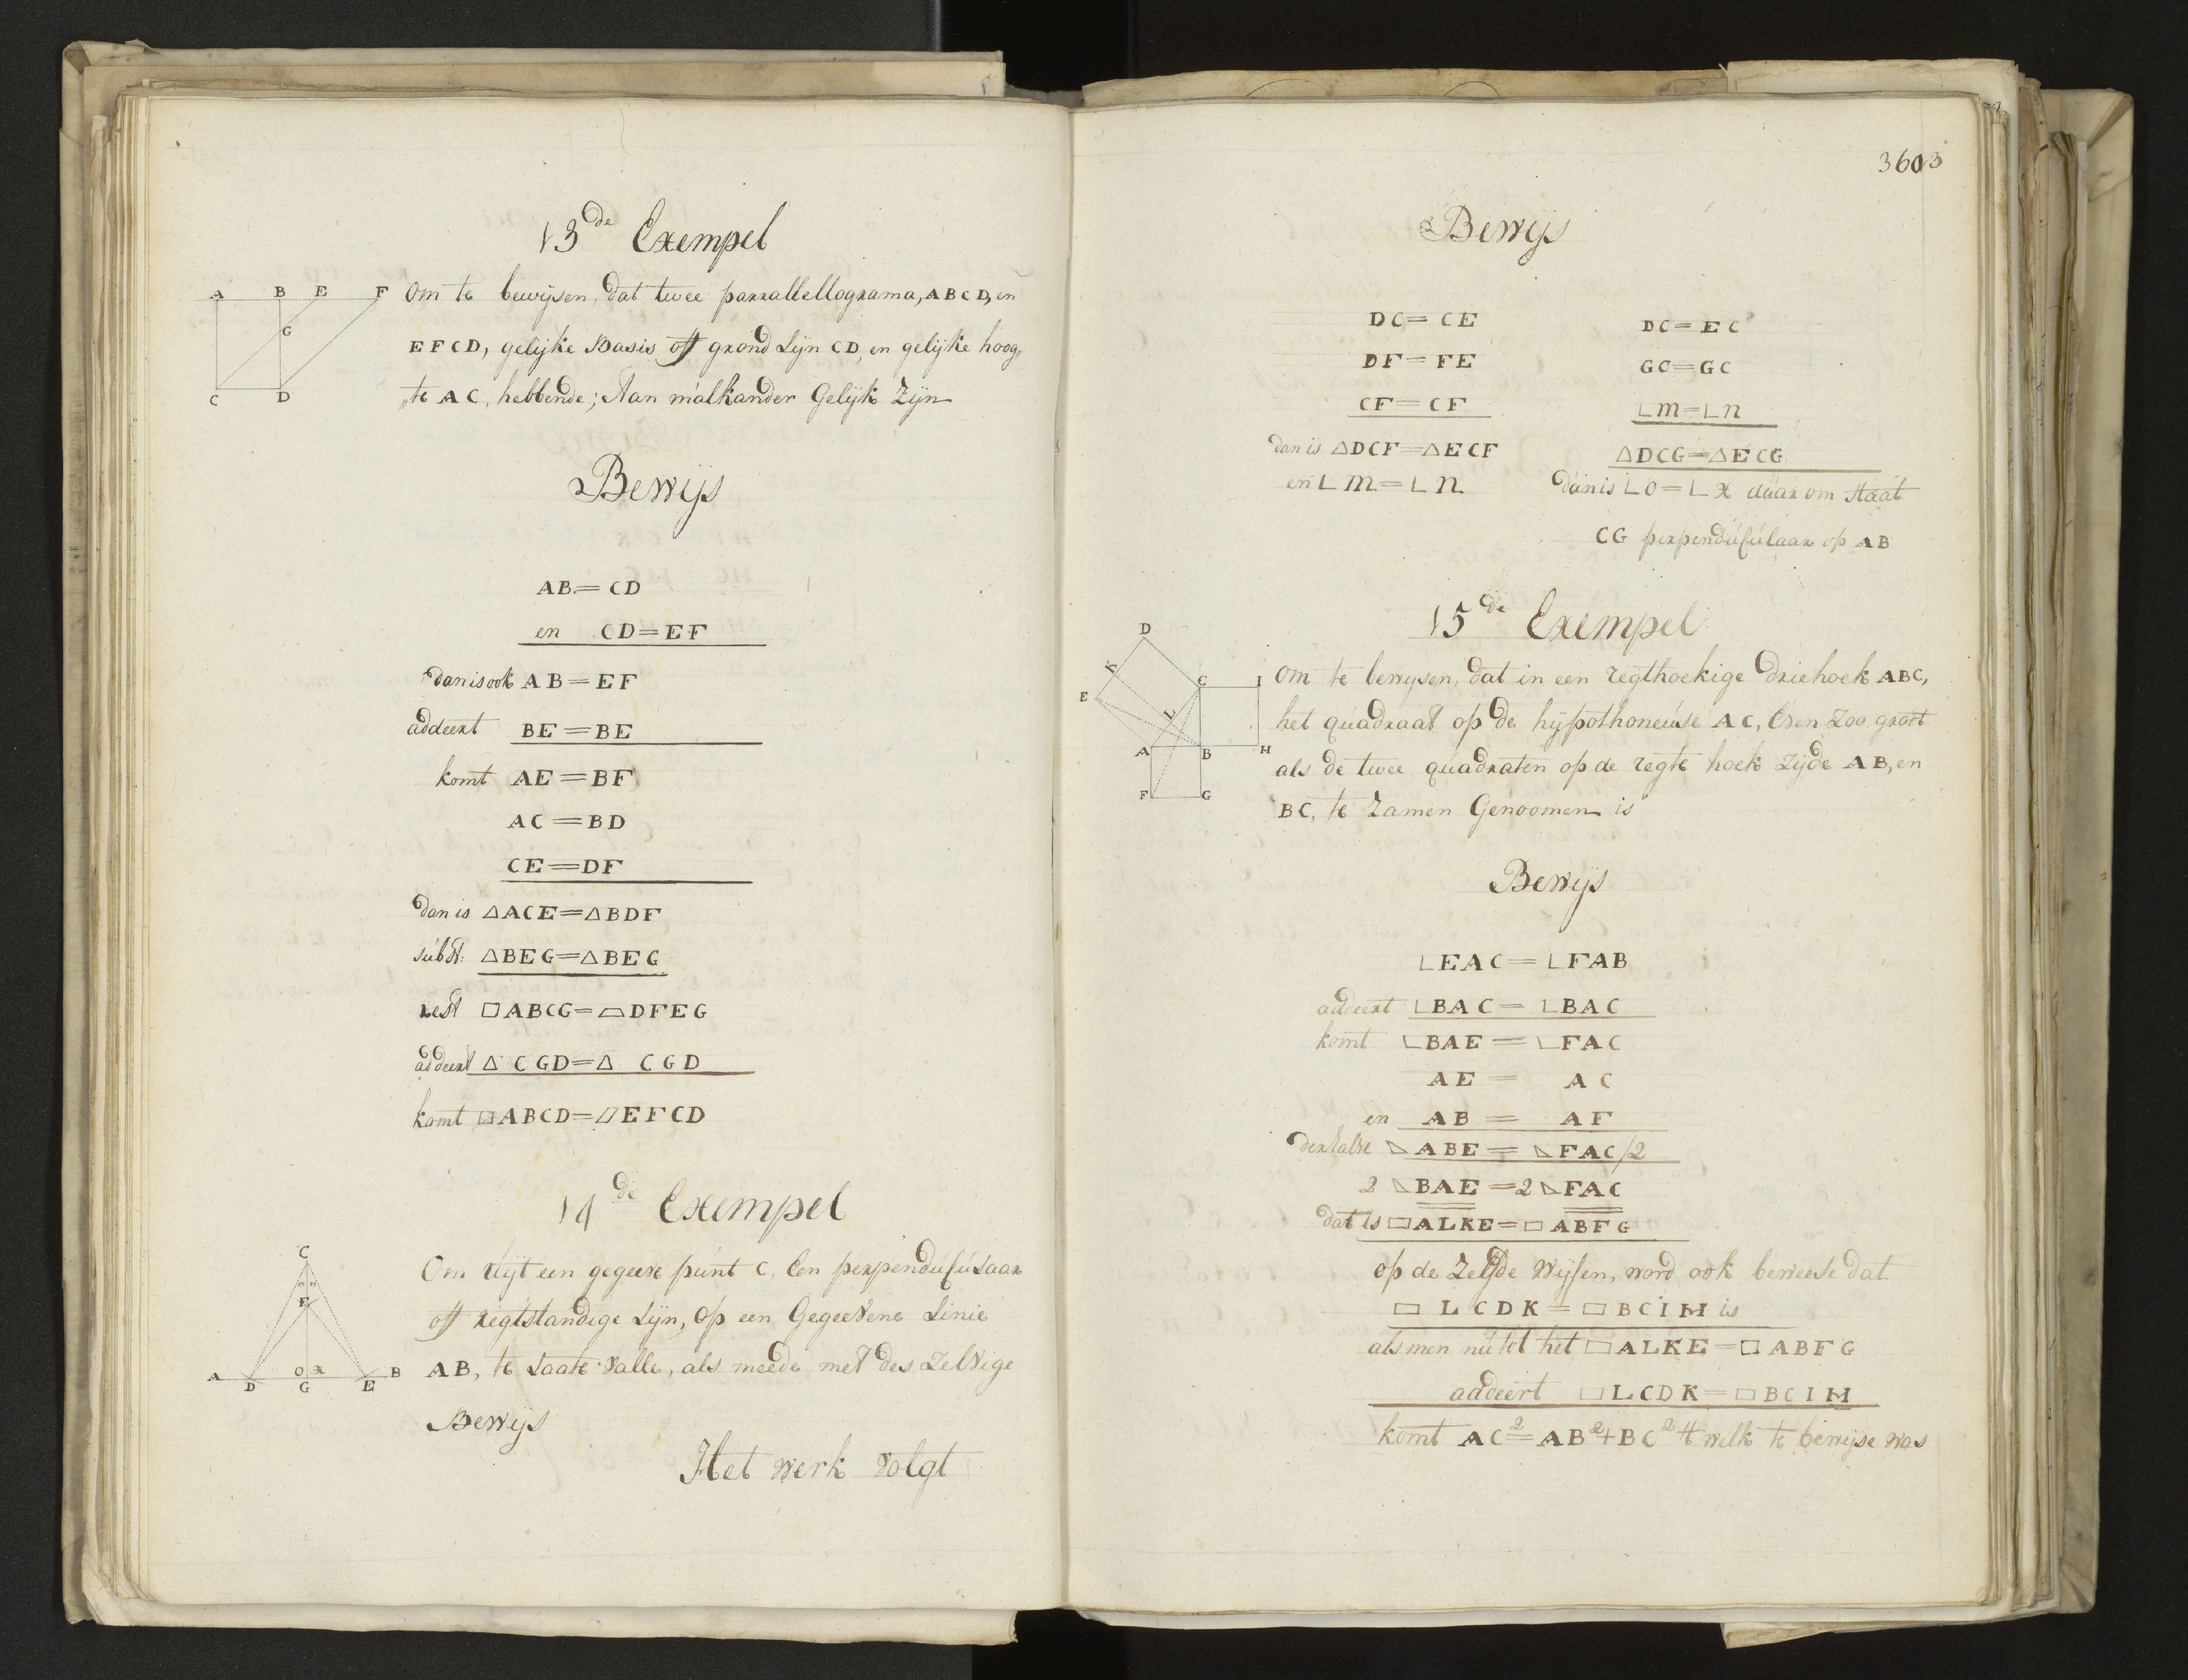 13de Exempel
A B E F
G
C D
Om te bewijsen, dat twee parrallellograma, ABCD, en
EFCD, gelijke Basis off grond Lijn CD, en gelijke hoog„
„te AC, hebbende; Aan malkander Gelijk Zijn
Bewijs
AB = CD
en CD = EF
dan is ook AB = EF
addeert BE = BE
komt AE = BF
AC = BD
CE = DF
dan is △ACE = △BDF
subst: △BEG = △BEG
rest □ABCG = ⏢DFEG
addeert △ CGD = △ CGD
komt □ABCD = ▱EFCD
14de Exempel
C
E
A D O x G E B
Om uijt een gegeeve punt C, Een perpenducúlaar
off regtstandige Lijn, Op een Gegeevene Linie
AB, te Laate valle, als meede met des Zelvige
Bewijs
Het werk volgt
3603
Bewijs
DC = CE
DF = FE
CF = CF
dan is △DCF = △ECF
en ∟m = ∟n
DC = EC
GC = GC
∟m = ∟n
△DCG = △ECG
dan is ∟o = ∟x daar om staat
CG perpenducúlaar op AB
15de Exempel
D
K
C I
E
L
A B H
F G
Om te bewysen, dat in een regthoekige driehoek ABC,
het quadraat op de hypothoneuse AC, Even Zoo groot
als de twee quadraten op de regte hoek Zijde AB, en
BC, te Zamen Genoomen is
Bewijs
∟EAC = ∟FAB
addeert ∟BAC = ∟BAC
komt ∟BAE = ∟FAC
AE = AC
en AB = AF
derhalve ◺ABE = ◺FAC/2
2 ◺BAE = 2 ◺FAC
dat is □ALKE = □ABFG
op de Zelfde Wijsen, word ook beweese dat
□ LCDK = □ BCIH is
als men nu tot het □ALKE = □ABFG
addeert □LCDK = □BCIH
komt AC² = AB² + BC² 't welk te bewijse was